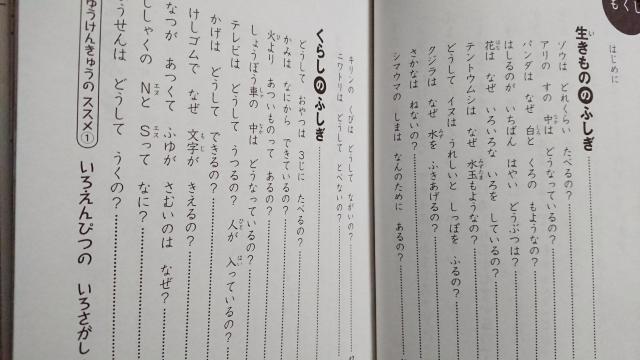 もくじ
はじめに
生きもののふしぎ
ゾウは どれくらい たべるの?
アリの すの 中は どうなっているの?
パンダは なぜ 白と くろの もようなの?
はしるのが いちばん はやい どうぶつは?
花は なぜ いろいろな いろを しているの?
テントウムシは なぜ 水玉もようなの?
どうして イヌは うれしいと しっぽを ふるの?
クジラは なぜ 水を ふきあげるの?
さかなは ねないの?
シマウマの しまは なんのために あるの?
キリンの くびは どうして ながいの?
ニワトリは どうして とべないの?
くらしのふしぎ
どうして おやつは 3じに たべるの?
かみは なにから できているの?
火より あついものって あるの?
しょうぼう車の 中は どうなっているの?
テレビは どうして うつるの? 人が 入っているの?
かげは どうして できるの?
けしゴムで なぜ 文字が きえるの?
なつが あつくて ふゆが さむいのは なぜ?
しゃくの NとSって なに?
うせんは どうして うくの?
ゅうけんきゅうの ススメ① いろえんぴつの いろさがし